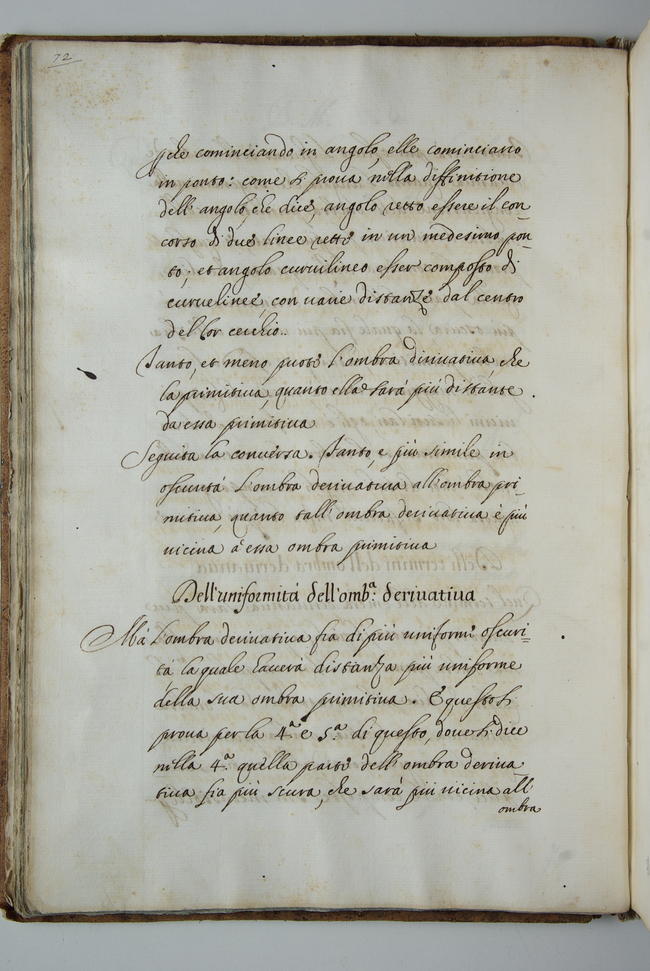 72
pche cominciando in angolo, elle cominciano
in ponto: come si proua nella diffinitione
dell'angolo, che dice, angolo retto essere il con
corso di due linee rette in un medesimo pon=
to; et angolo curuilineo esser composto di
curuelinee, con uarie distanze dal centro
del lor cerchio.
Tanto, et meno puote l'ombra diriuatiua, che
la primitiua, quanto ella sarà più distante
da essa primitiua
Seguita la conuersa. Tanto, e più simile in
oscurità l'ombra deriuatiua all'ombra pri=
mitiua, quanto tall'ombra deriuatiua è più
uicina à essa ombra primitiua
Dell'uniformità dell'omb.ª deriuatiua
Mà l'ombra deriuatiua fia di più uniforme oscuri=
tà, la quale hauerà distanza più uniforme
della sua ombra primitiua. E questo si
proua per la 4.ª e 5.ª di questo, doue si dice
nella 4.ª quella parte dell'ombra deriua
tiua fia più scura, che sarà più uicina all'
ombra